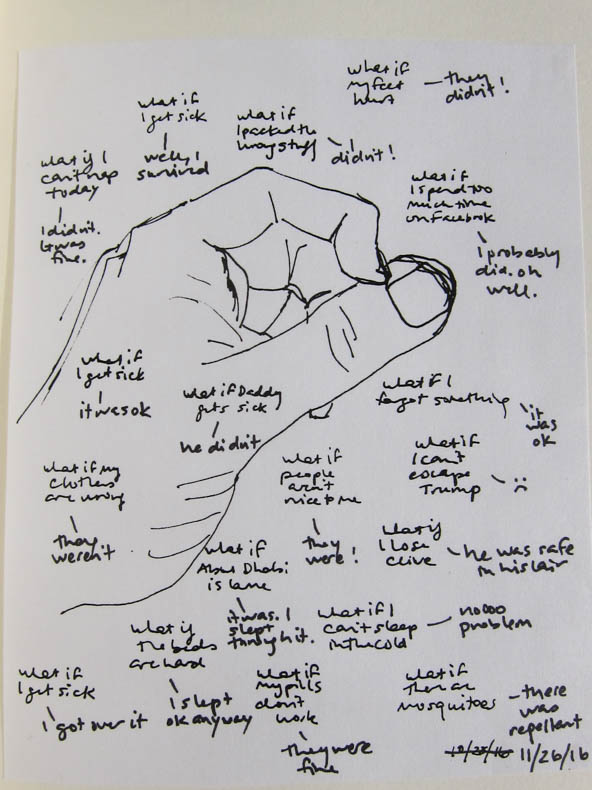 what if
my feet
hurt
they
didn't!
what if
I get sick
well, I
survived
what if
I packed the
wrong stuff
didn't!
what if I
can't nap
today
I didn't.
It was
fine.
what if
I spend too
much time
on Facebook
I probably
did. oh
well.
what if
I get sick
it was ok
what if Daddy
gets sick
he didn't
what if I
forgot something
it
was
ok
what if my
clothes
are wrong
they
weren't
what if
people
aren't
nice to me
they
were!
what if
I can't
escape
Trump
:(
what if
I lose
Clive
he was safe
in his lair
what if
Abu Dhabi
is lame
it was. I
slept
through it.
what if
the beds
are hard
I slept
ok anyway
what if I
can't sleep
in the cold
nooo
problem
what if
I get sick
I got over it
what if
my pills
don't
work
they were
fine
what if
there are
mosquitoes
there
was
repellant
11/26/16